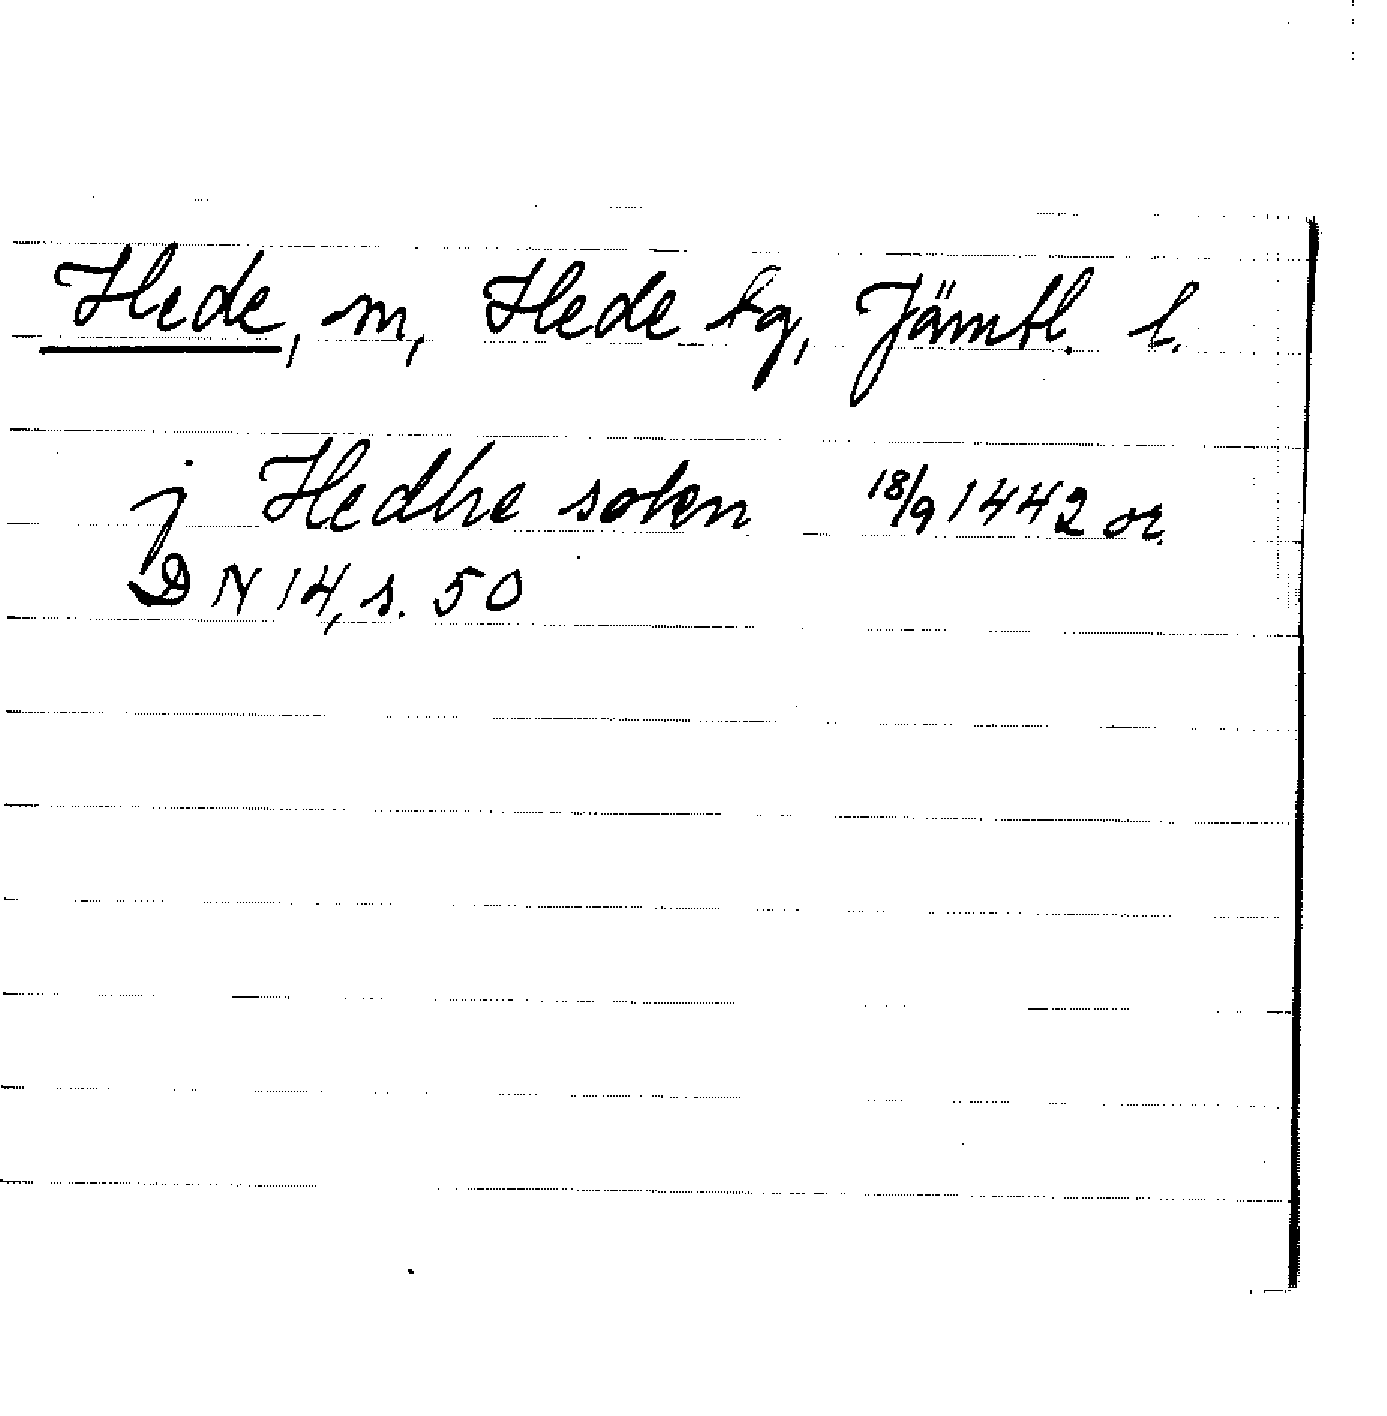 Hede, sn, Hede tg, Jämtl. l.
j Hedhe sokn 18/9 1442 or.
DN 14, s. 50